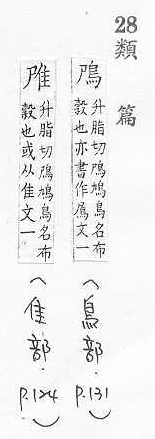 28 類篇
鳲
升脂切鳲鳩鳥名布
穀也亦書作文一
(鳥部. p.131)
升脂切鳲鳩鳥名布
穀也或从隹文一
(隹部. p.124)